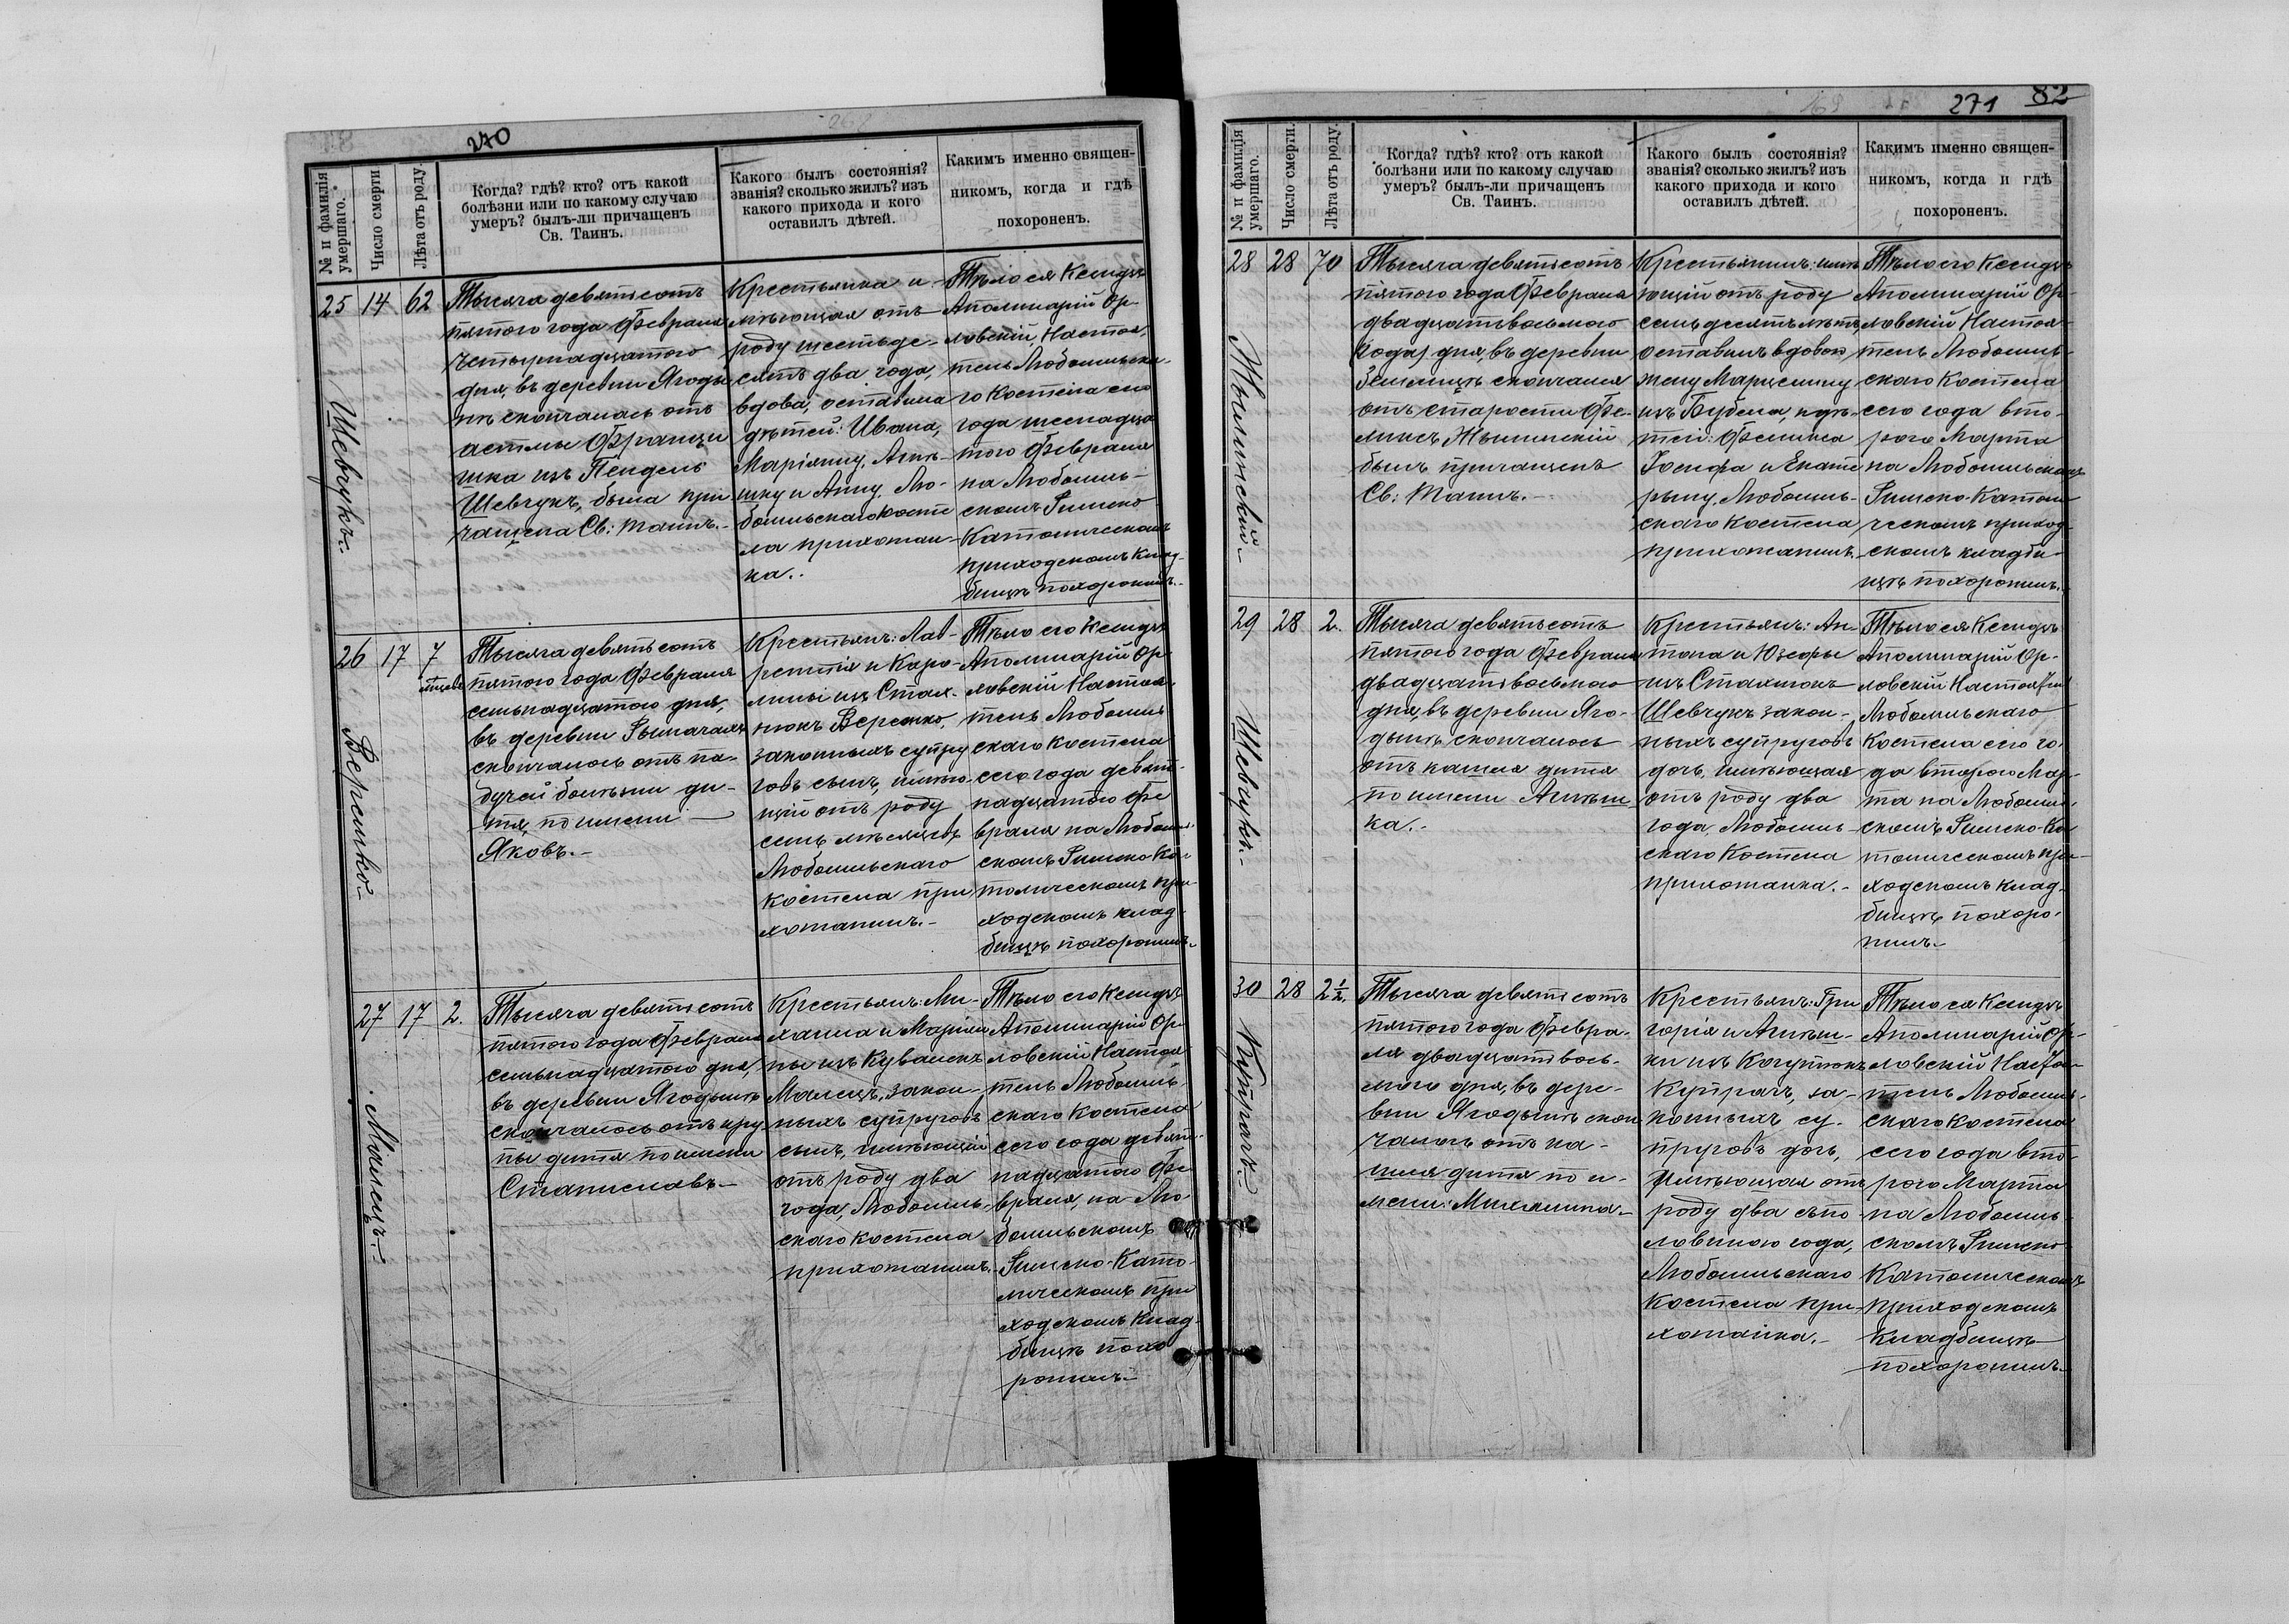 270
№ и фамилія умершаго.
Число смерти
Лѣта отъ роду.
Когда? гдѣ? кто? отъ какой
болѣзни или по какому случаю
умеръ? былъ-ли причащенъ
Св. Таинъ.
Какого былъ состоянія?
званія? сколько жилъ? изъ
какого прихода и кого
оставилъ дѣтей.
Какимъ именно священ-
никомъ, когда и гдѣ
похороненъ.
25
Шевчукъ.
14
62
Тысяча девятьсотъ
пятого года Февраля
четырнадцатого
дня, въ деревни Ягоды
нѣ скончалась отъ
астмы Францы
шка изъ Пендель
Шевчукъ, была при
чащена Св: Таинъ.
Крестьянка и-
мѣющая отъ
роду шестьде-
сятъ два года,
вдова, оставила
дѣтей: Ивана,
Маріянну, Агнѣ-
шку и Анну. Лю-
бомльскаго косте
ла прихожан-
ка.
Тѣло ея Ксендзъ
Аполинарій Ор-
ловскій, Настоя-
тель Любомльска-
го Костела сего
года шеснадца
того Февраля
на Любомль-
скомъ Римско
Католическомъ
приходскомъ клад-
бищѣ похоронилъ.
26
Веремко
17
7
мѣсяцевъ
Тысяча девятьсотъ
пятого года Февраля
семьнадцатого дня,
въ деревни Рымачахъ
скончалось отъ па-
дучей болѣзни ди-
тя, по имени
Яковъ.
Крестьянъ: Лав-
рентія и Каро-
лины изъ Стах-
нюкъ Веремко,
законныхъ супру
говъ сынъ, имѣю-
щій отъ роду
семь мѣсяцевъ,
Любомльскаго
костела при
хожанинъ.
Тѣло его Ксендзъ
Аполинарій Ор-
ловскій Настоя-
тель Любомль
скаго костела
сего года девят-
надцатого Фе
враля на Любомль-
скомъ Римско Ка-
толическомъ при-
ходскомъ клад-
бищѣ похоронилъ.
27
Малецъ.
17
2.
Тысяча девятьсотъ
пятого года Февраля
семьнадцатого дня,
въ деревни Ягодынѣ
скончалось отъ кру-
пы дитя по имени
Станиславъ.
Крестьянъ: Ми-
хаила и Маріян
ны изъ Кувалекъ
Малецъ, закон-
ныхъ супруговъ
сынъ, имѣющій
отъ роду два
года, Любомль-
скаго костела
прихожанинъ.
Тѣло его Ксендзъ
Аполинарій Ор-
ловскій Настоя-
тель Любомль-
скаго костела
сего года девят-
надцатого Фе
враля, на Лю-
бомльскомъ
Римско-Като-
лическомъ при
ходскомъ клад-
бищѣ похо
ронилъ.
271 82
№ и фамилія умершаго.
Число смерти.
Лѣта отъ роду.
Когда? гдѣ? кто? отъ какой
болѣзни или по какому случаю
умеръ? былъ-ли причащенъ
Св. Таинъ.
Какого былъ состоянія?
званія? сколько жилъ? изъ
какого прихода и кого
оставилъ дѣтей.
Какимъ именно священ-
никомъ, когда и гдѣ
похороненъ.
28
28
70
Тысяча девятьсотъ
пятого года Февраля
двадцатьвосьмого
(года) дня, въ деревни
Землицѣ скончался
отъ старости Фе-
ликсъ
былъ причащенъ
Св: Таинъ.
Крестьянинъ: имѣ
ющій отъ роду
семьдесятъ лѣтъ,
оставилъ вдовою
жену Марцелину
изъ Бубела, и дѣ-
тей: Феликса
Іосифа и Екате
рыну. Любомль-
скаго Костела
прихожанинъ.
Тѣло его Ксендзъ
Аполинарій Ор-
ловскій Настоя-
тель Любомль-
скаго Костела
сего года вто-
рого Марта
на Любомльскомъ
Римско-Католи
ческомъ приход-
скомъ кладби-
щѣ похоронилъ.
29
Шевчукъ.
28
2.
Тысяча девятьсотъ
пятого года Февраля
двадцатьвосьмого
дня, въ деревни Яго-
дынѣ скончалось
отъ кашля дитя
по имени Агнѣш
ка.
Крестьянъ: Ан-
тона и Юзефы
изъ Стахнюкъ
Шевчукъ закон-
ныхъ супруговъ
дочь, имѣющая
отъ роду два
года, Любомль-
скаго Костела
прихожанка.
Тѣло ея Ксендзъ
Аполинарій Ор-
ловскій Настоятель
Любомльскаго
Костела сего го-
да второго Мар-
та на Любомль-
скомъ Римско-Ка
толическомъ при-
ходскомъ клад-
бищѣ похоро-
нилъ.
30
Купрачъ.
28
2½.
Тысяча девятьсотъ
пятого года Февра-
ля двадцатьвось-
мого дня, въ дере-
вни Ягодынѣ скон
чалось отъ ка-
шля дитя по и-
мени: Михалина.
Крестьянъ: Гри
горія и Агнѣш-
ки изъ Когутюкъ
Купрачъ, за-
конныхъ су-
пруговъ дочь,
имѣющая отъ
роду два съ по-
ловиною года,
Любомльскаго
Костела при-
хожанка.
Тѣло ея Ксендзъ
Аполинарій Ор-
ловскій Настоя-
тель Любомль-
скаго Костела
сего года вто-
рого Марта
на Любомль-
скомъ Римско-
Католическомъ
приходскомъ
кладбищѣ
похоронилъ.